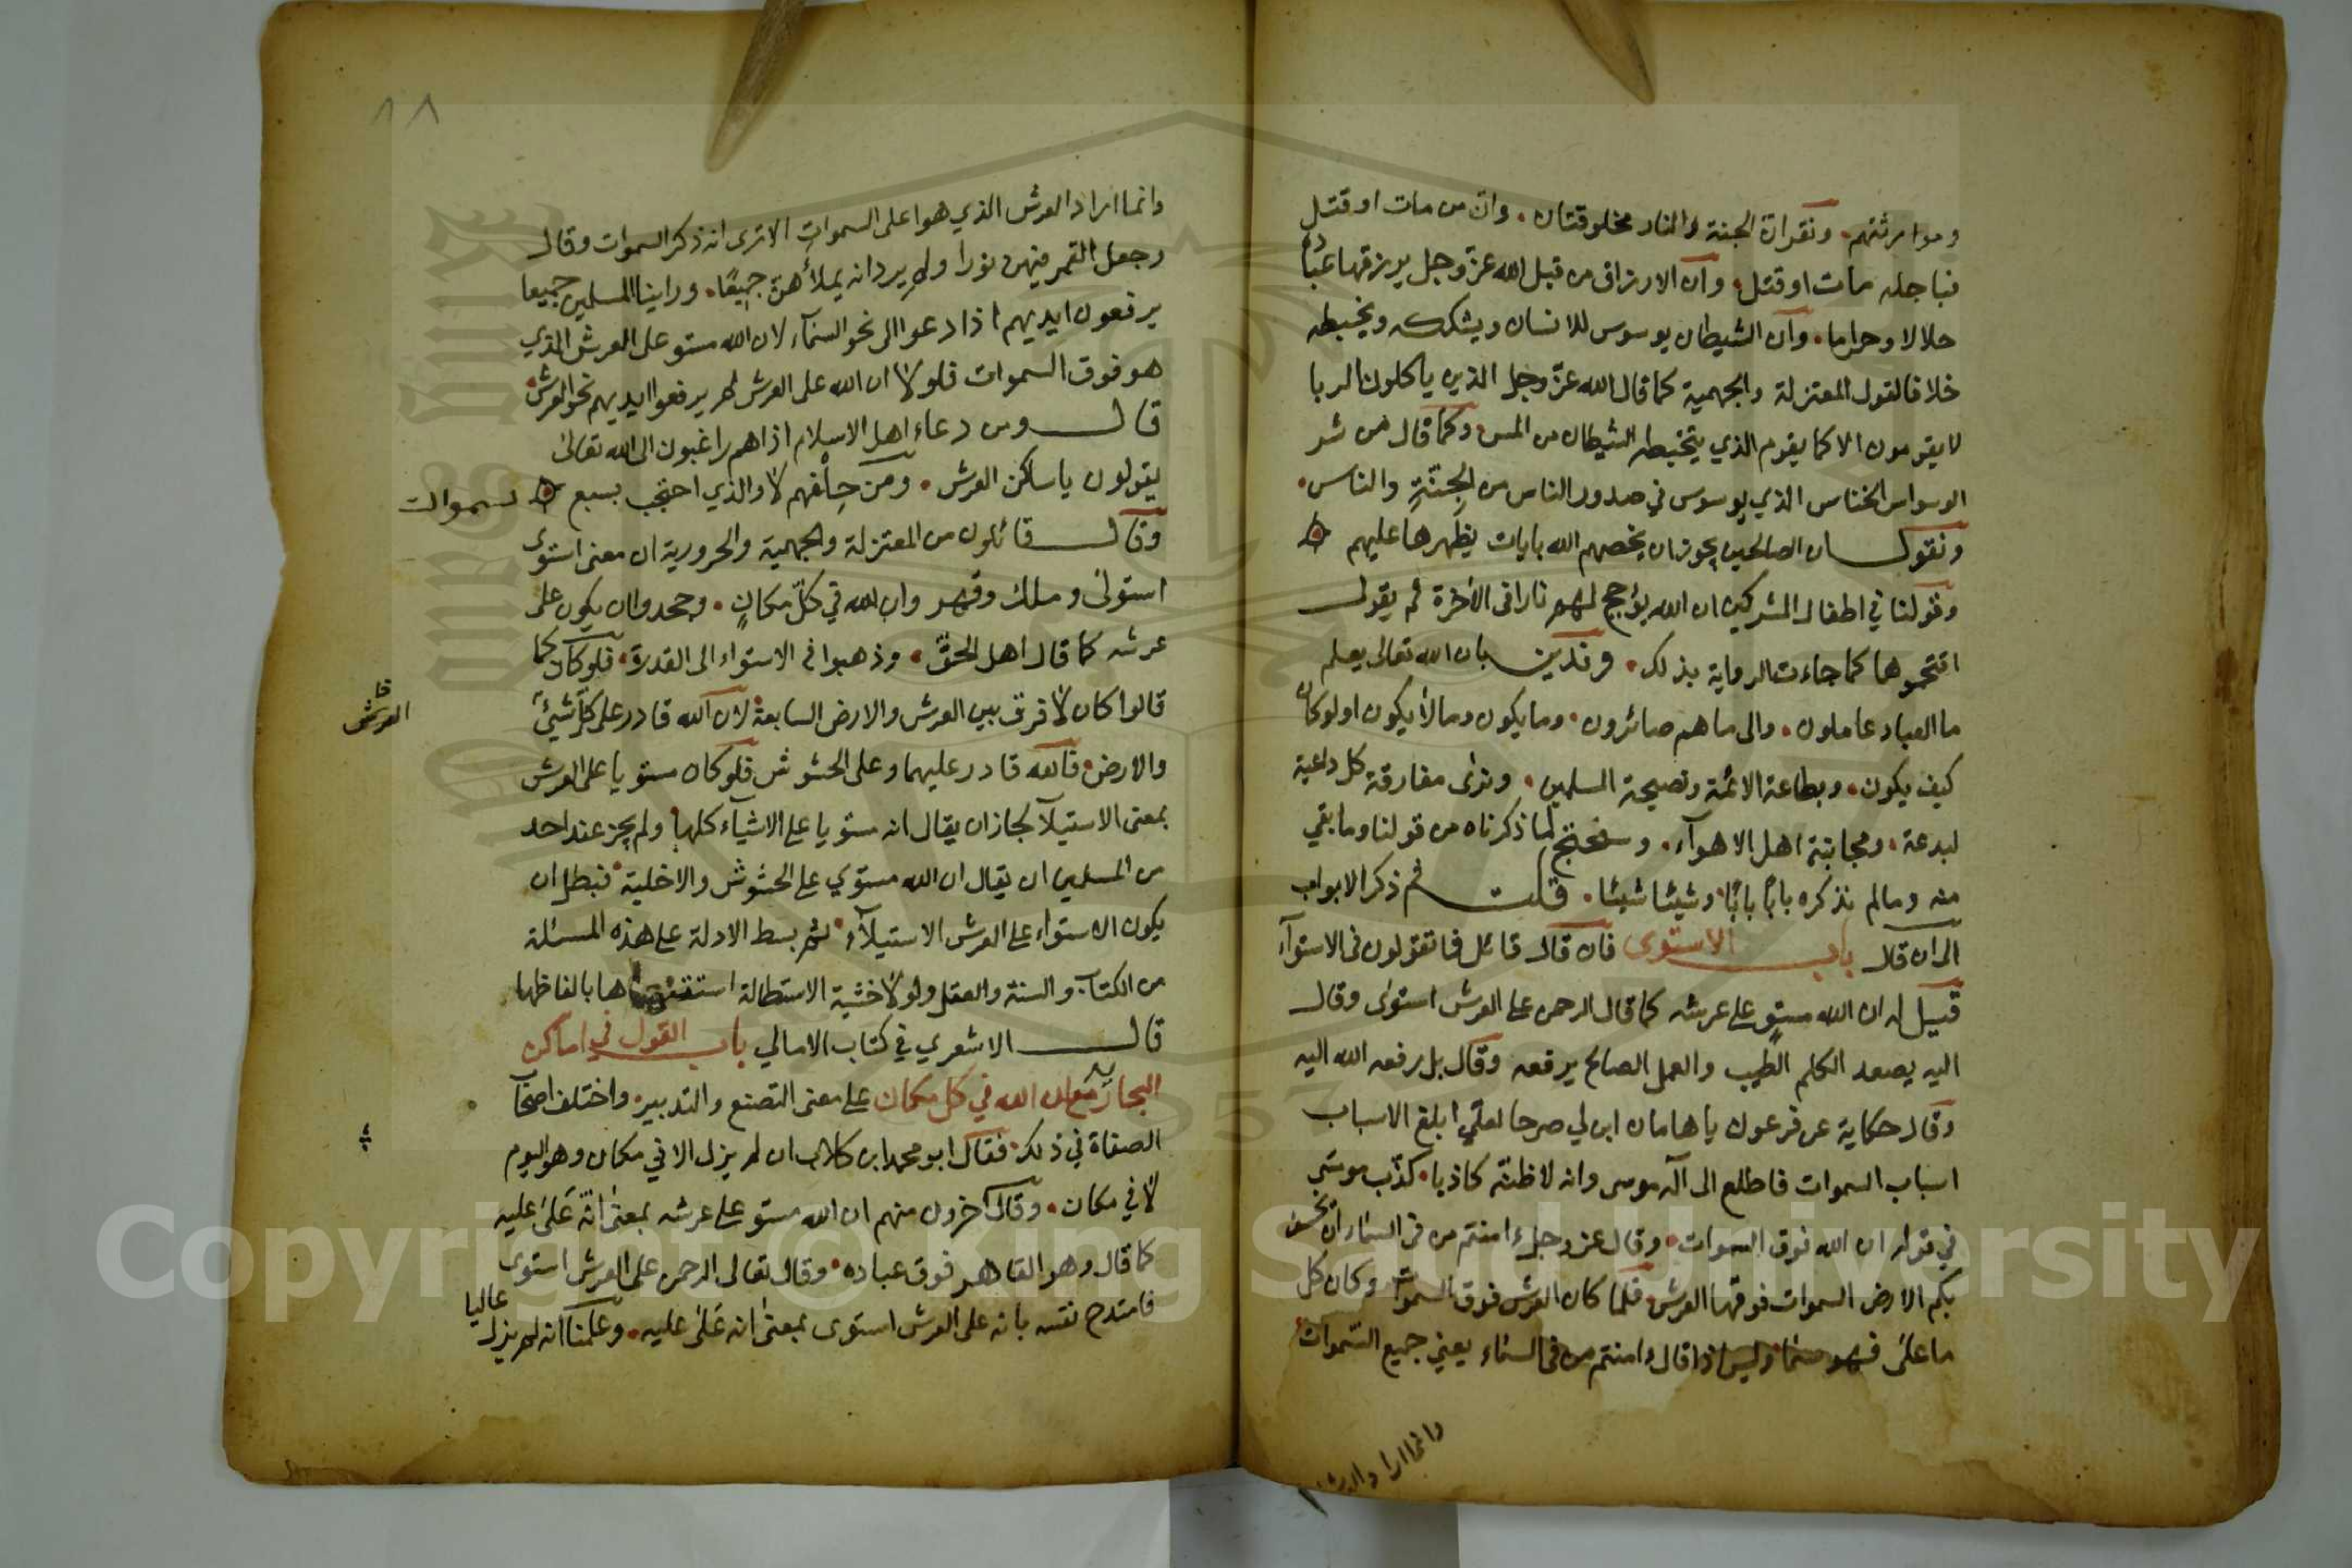 وموامرثتهم. ونقر ان الجنة والنار مخلوقتان. وان من مات او قتل
فباجله مات او قتل. وان الارزاق من قبل الله عز وجل يرزقها عباده
حلالا وحراما. وان الشيطان يوسوس للانسان ويشككه ويخبطه
خلافا لقول المعتزلة والجهمية كما قال الله عز وجل الذين ياكلون الربا
لا يقومون الا كما يقوم الذي يتخبطه الشيطان من المس. وكما قال من شر
الوسواس الخناس الذي يوسوس في صدور الناس من الجنة والناس.
ونقول ان الصالحين يجوز ان يخصهم الله بايات يظهرها عليهم
وقولنا في اطفال المشركين ان الله يؤجج لهم نارا في الاخرة ثم يقول
اقتحموها كما جاءت الرواية بذلك. وندين بان الله تعالى يعلم
ما العباد عاملون. والى ما هم صائرون. وما يكون وما لا يكون او لو كان
كيف يكون. وبطاعة الائمة ونصيحة المسلمين. ونرى مفارقة كل داعية
لبدعة. ومجانبة اهل الاهوآء. وسنحتج لما ذكرناه من قولنا وما بقي
منه وما لم نذكره بابا بابا. وشيئا شيئا. قلت ثم ذكر الابواب
الى ان قال باب الاستوى فان قال قائل فما تقولون في الاستوآء
قيل له ان الله مستو على عرشه كما قال الرحمن على العرش استوى وقال
اليه يصعد الكلم الطيب والعمل الصالح يرفعه وقال بل رفعه الله اليه
وقال حكاية عن فرعون يا هامان ابن لي صرحا لعلي ابلغ الاسباب
اسباب السموات فاطلع الى اله موسى وانه لاظنه كاذبا. كذب موسى
في قوله ان الله فوق السموات. وقال عز وجل ءامنتم من في السماء ان يخسف
بكم الارض السموات فوقها العرش فلما كان العرش فوق السموات وكان كل
ما على فهو سماء وليس اذا قال ءامنتم من في السماء يعني جميع السموات
وانما اراد العرش
١٨
وانما اراد العرش الذي هو اعلى السموات الا ترى انه ذكر السموات وقال
وجعل القمر فيهن نورا ولم يرد انه يملأهن جميعا. وراينا المسلمين جميعا
يرفعون ايديهم اذا دعوا الى نحو السمآء لان الله مستو على العرش الذي
هو فوق السموات فلولا ان الله على العرش لم يرفعوا ايديهم نحو العرش
قال ومن دعاء اهل الاسلام اذا هم راغبون الى الله تعالى
يقولون يا ساكن العرش. ومن حلفهم لا والذي احتجب بسبع سموات
وقال قائلون من المعتزلة والجهمية والحرورية ان معنى استوى
استولى وملك وقهر وان الله في كل مكان. وجحدوا ان يكون على
عرشه كما قال اهل الحق. وذهبوا في الاستواء الى القدرة. فلو كان كما
قالوا كان لا فرق بين العرش والارض السابعة لان الله قادر على كل شيئ
العرش
والارض. فالله قادر عليهما وعلى الحشوش فلو كان مستويا على العرش
بمعنى الاستيلآ لجاز ان يقال انه مستويا على الاشيآء كلها ولم يجز عند احد
من المسلمين ان يقال ان الله مستوي على الحشوش والاخلية. فبطل ان
يكون الاستواء على العرش الاستيلآء. ثم بسط الادلة على هذه المسئلة
من الكتاب والسنة والعقل ولولا خشية الاستطالة ها بالفاظها
قال الاشعري في كتاب الامالي باب القول في اماكن
ان الله في كل مكان على معنى التصنع والتدبير. واختلف اصحآ
الصفاة في ذلك. فقال ابو محمد ابن كلاب ان لم يزل الا في مكان وهو اليوم
لا في مكان. وقال اخرون منهم ان الله مستو على عرشه بمعنى انه على عليه
كما قال وهو القاهر فوق عباده. وقال تعالى الرحمن على العرش استوى
فامتدح نفسه بانه على العرش استوى بمعنى انه على عليه. وعلمنا انه لم يزل عاليا
Copyright © King Saud University
King Saud University
1957